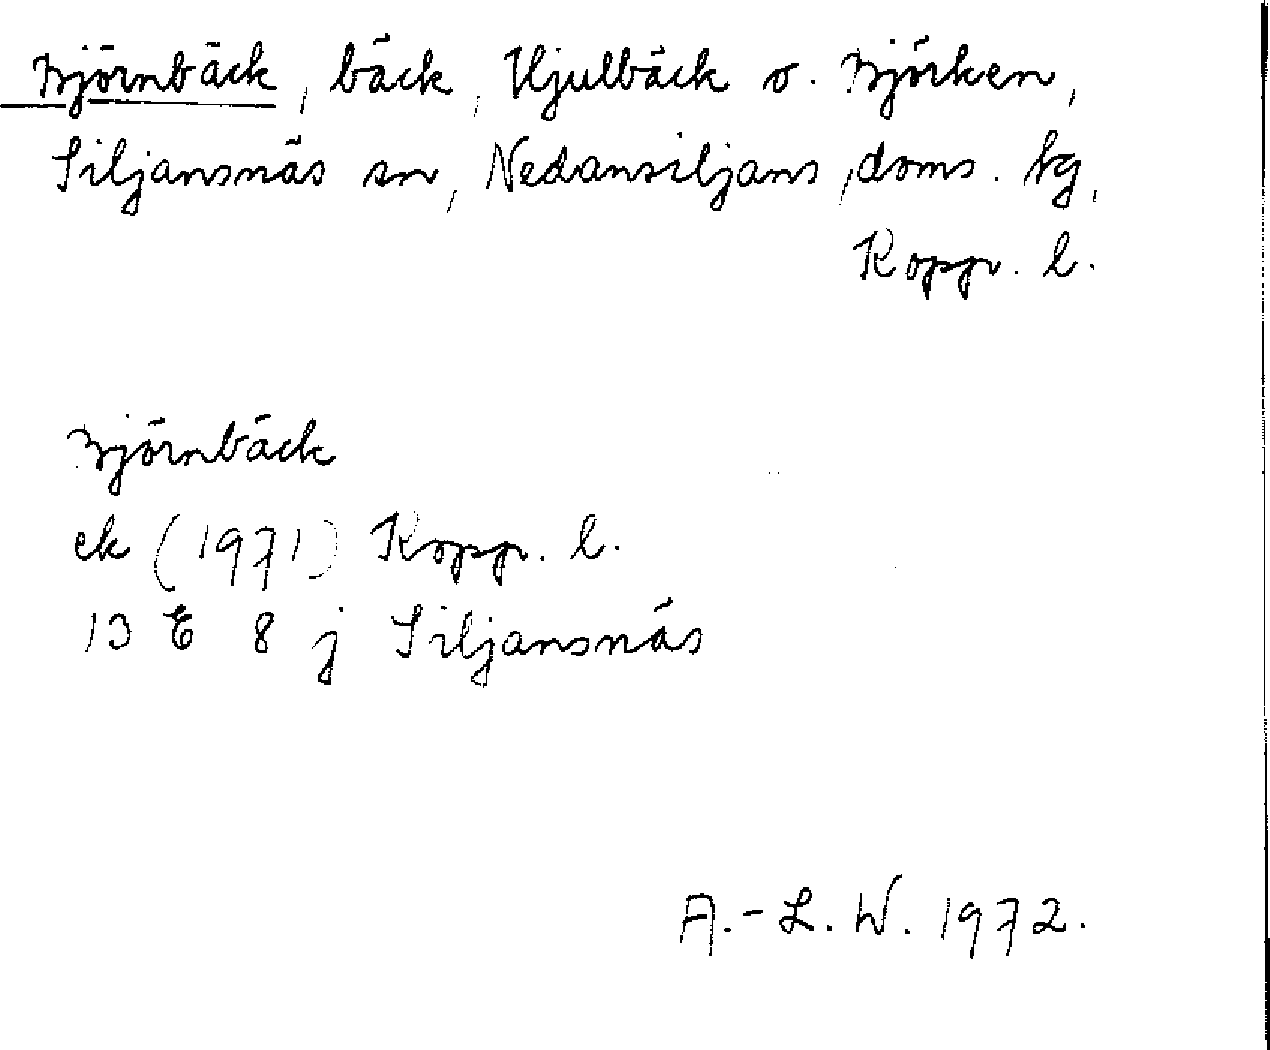 Björnbäck, bäck, Hjulbäck o. Björken,
Siljansnäs sn, Nedansiljans doms. tg,
Koppr. l.
Björnbäck
ek (1971) Koppr. l.
13 E 8 j Siljansnäs
A.-L. W. 1972.